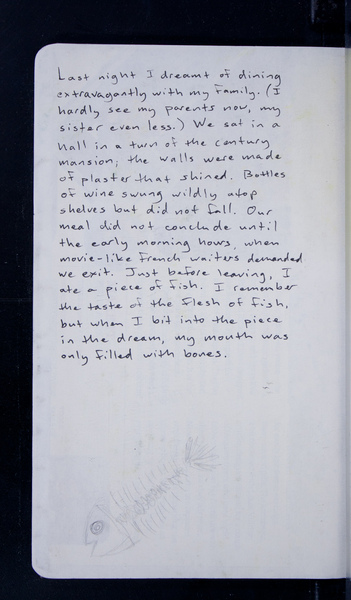 Last night I dreamt of dining
extravagantly with my family. (I
hardly see my parents now, my
sister even less.) We sat in a
hall in a turn of the century
mansion; the walls were made
of plaster that shined. Bottles
of wine swung wildly atop
shelves but did not fall. Our
meal did not conclude until
the early morning hours, when
movie-like French waiters demanded
we exit. Just before leaving, I
ate a piece of fish. I remember
the taste of the flesh of fish,
but when I bit into the piece
in the dream, my mouth was
only filled with bones.